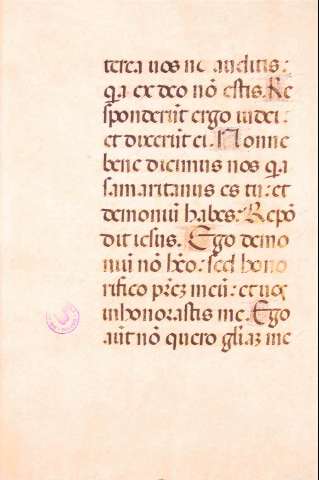 terea uos nō auditis:
q̄a ex deo nō estis. Re
sponderūt ergo iudei:
et dixerūt ei. Nonne
bene dicimus nos q̄a
samaritanus es tu: et
demoniū habes: Respō
dit iesus. Ego demo
niū nō hēo: sed hono
rifico pr̄ez meū: et uos
inhonorastis me. Ego
aūt nō quero gl̄iaz me